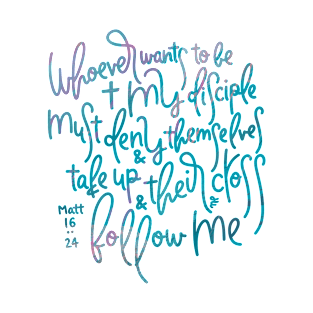 Whoever wants to be
my disciple
must deny themselves
&
take up their cross
&
Matt
16
:
24
follow me